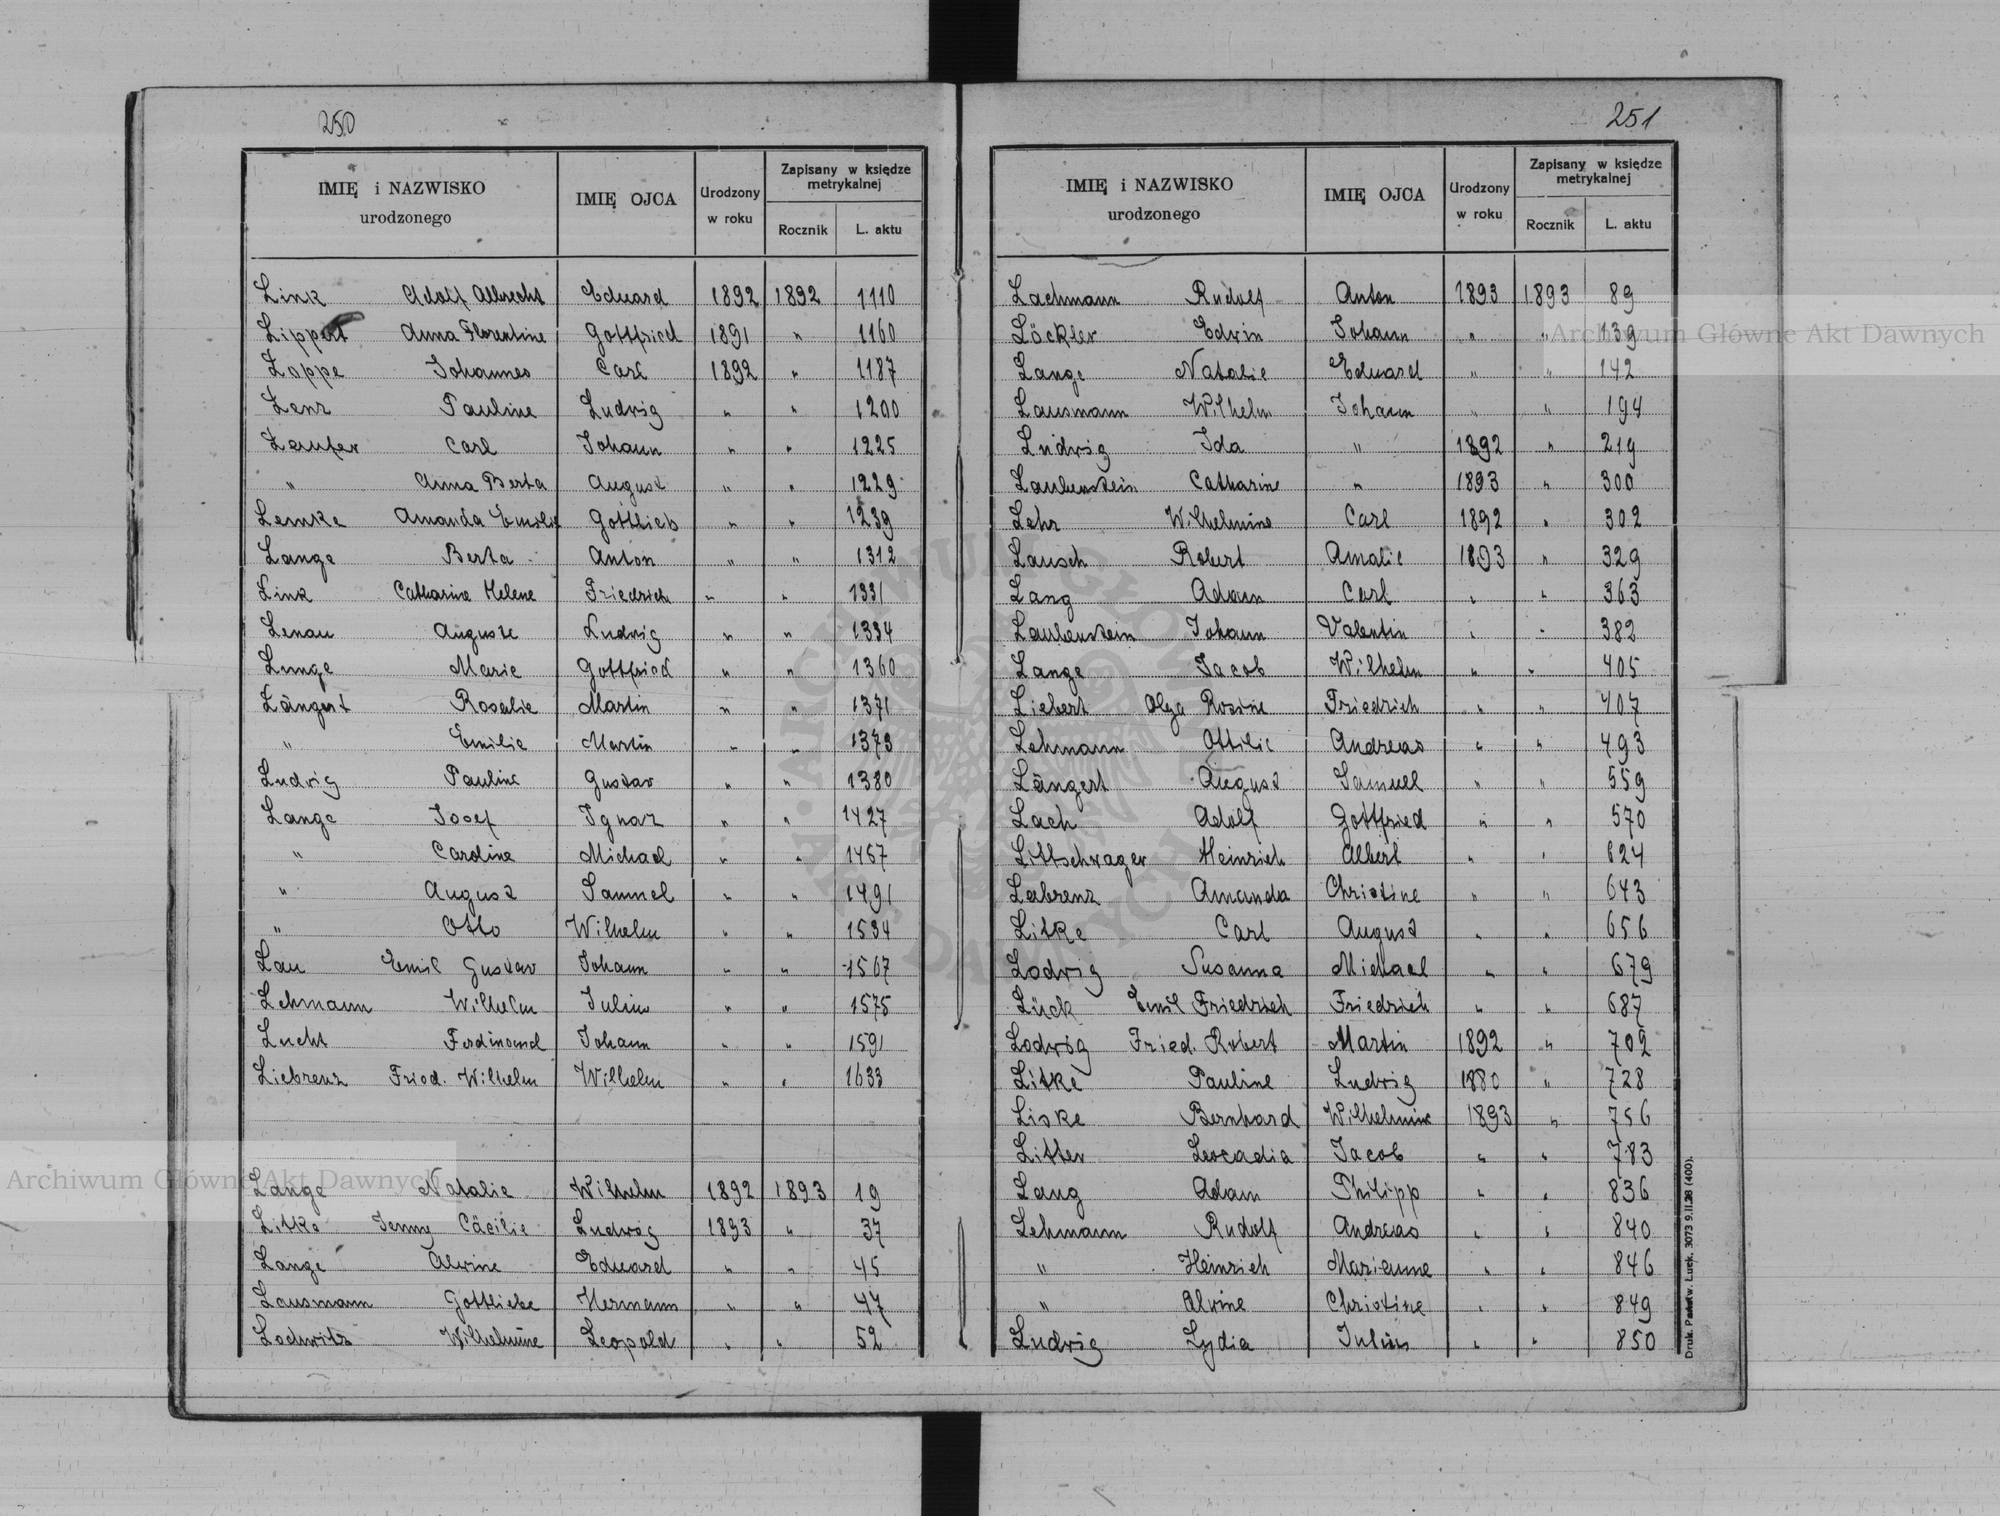 250
IMIĘ i NAZWISKO urodzonego IMIĘ OJCA Urodzony w roku Zapisany w księdze metrykalnej Rocznik L. aktu
Link Adolf Albrecht Eduard 1892 1892 1110
Lippert Anna Florentine Gottfried 1891 " 1160
Loppe Johannes Carl 1892 " 1187
Lenz Pauline Ludwig " " 1200
Leufer Carl Johann " " 1225
" Anna Berta August " " 1229
Lemke Amanda Emilie Gottlieb " " 1239
Lange Berta Anton " " 1312
Link Catharine Helene Friedrich " " 1331
Lenau Auguste Ludwig " " 1334
Lange Marie Gottfried " " 1360
Längert Rosalie Martin " " 1371
" Emilie Martin " " 1373
Ludwig Pauline Gustav " " 1380
Lange Josef Ignaz " " 1427
" Caroline Michael " " 1467
" August Samuel " " 1491
" Otto Wilhelm " " 1534
Lau Emil Gustav Johann " " 1567
Lehmann Wilhelm Julius " " 1575
Lucht Ferdinand Johann " " 1591
Liebrenz Fried. Wilhelm Wilhelm " " 1633
Lange Natalie Wilhelm 1892 1893 19
Litke Jenny Cäcilie Ludwig 1893 " 37
Lange Alwine Eduard " " 45
Lausmann Gottliebe Hermann " " 47
Lochwitz Wilhelmine Leopold " " 52
251
IMIĘ i NAZWISKO urodzonego IMIĘ OJCA Urodzony w roku Zapisany w księdze metrykalnej Rocznik L. aktu
Lachmann Rudolf Anton 1893 1893 89
Löckler Edwin Johann " " 139
Lange Natalie Eduard " " 142
Lausmann Wilhelm Johann " " 194
Ludwig Ida " 1892 " 219
Laubenstein Catharine " 1893 " 300
Lehr Wilhelmine Carl 1892 " 302
Lausch Robert Amalie 1893 " 329
Lang Adam Carl " " 363
Laubenstein Johann Valentin " " 382
Lange Jacob Wilhelm " " 405
Liebert Olga Rosine Friedrich " " 407
Lehmann Ottilie Andreas " " 493
Längert August Samuel " " 559
Lach Adolf Gottfried " " 570
Littschwager Heinrich Albert " " 624
Labrenz Amanda Christine " " 643
Litke Carl August " " 656
Lodwig Susanna Michael " " 679
Lück Emil Friedrich Friedrich " " 687
Lodwig Fried. Robert Martin 1892 " 702
Litke Pauline Ludwig 1880 " 728
Liske Bernhard Wilhelmine 1893 " 756
Litter Leocadia Jacob " " 783
Lang Adam Philipp " " 836
Lehmann Rudolf Andreas " " 840
" Heinrich Marianne " " 846
" Alwine Christine " " 849
Ludwig Lydia Julius " " 850
Druk. Państw. Łuck. 3073 9.II.28 (400).
Archiwum Główne Akt Dawnych
Archiwum Główne Akt Dawnych
ARCHIWUM GŁÓWNE AKT DAWNYCH